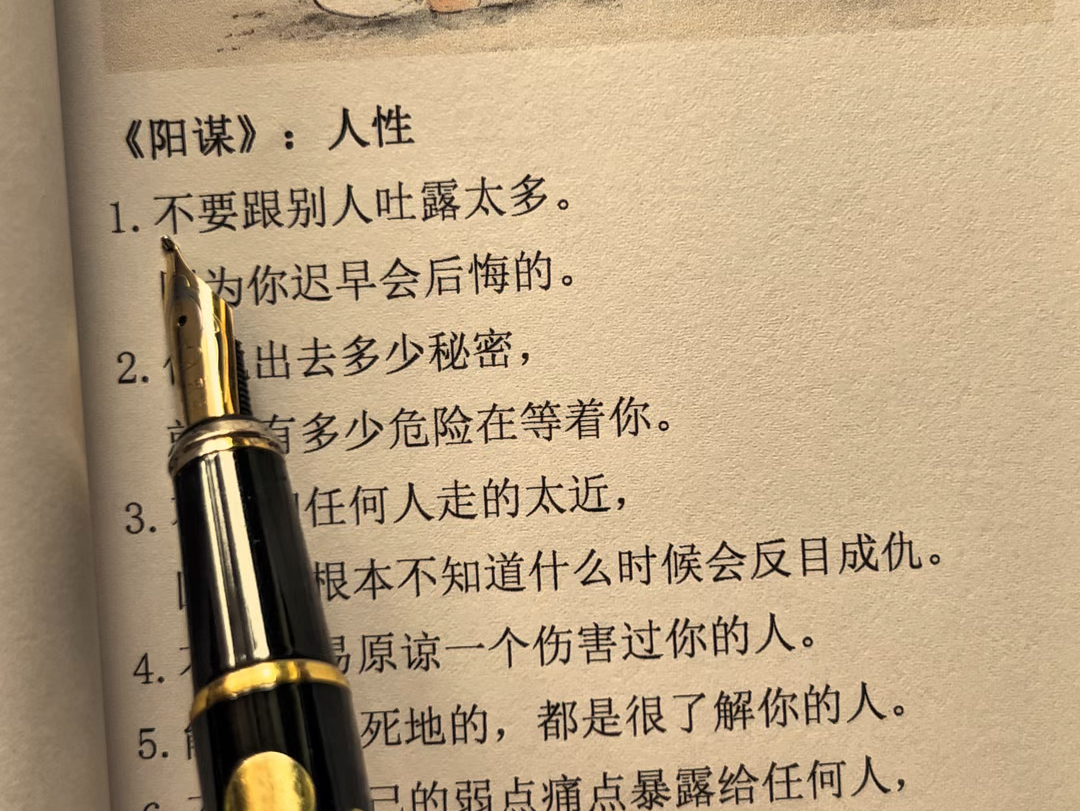 《阳谋》：人性
1.不要跟别人吐露太多。
为你迟早会后悔的。
2.出去多少秘密，
有多少危险在等着你。
3.任何人走的太近，
根本不知道什么时候会反目成仇。
4.易原谅一个伤害过你的人。
5.死地的，都是很了解你的人。
己的弱点痛点暴露给任何人，